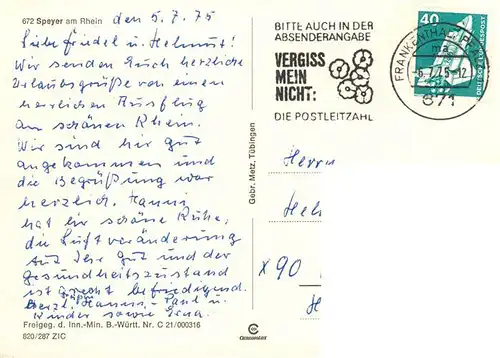 672 Speyer am Rhein
den 5.7.75
Liebe Friedel und Helmut!
Wir senden Euch herzliche
Urlaubsgrüße von einem
herrlichen Ausflug
am schönen Rhein.
Wir sind hier gut
angekommen und
die Begrüßung war
herzlich. Hanni
hat ihr schöne Ruhe,
die Luftveränderung
tut Ihr gut und der
Gesundheitszustand
ist recht befriedigend.
Herzl. Grüße Hanna, Paul u.
Kinder sowie
Freigeg. d. Inn.-Min. B.-Württ. Nr. C 21/000316
820/287 ZIC
Gebr. Metz, Tübingen
BITTE AUCH IN DER
ABSENDERANGABE
VERGISS
MEIN
NICHT:
DIE POSTLEITZAHL
FRANKENTHAL
ma
-6.7.75-12
671
40
DEUTSCHE BUNDESPOST
Herrn
Hel
x 90
H